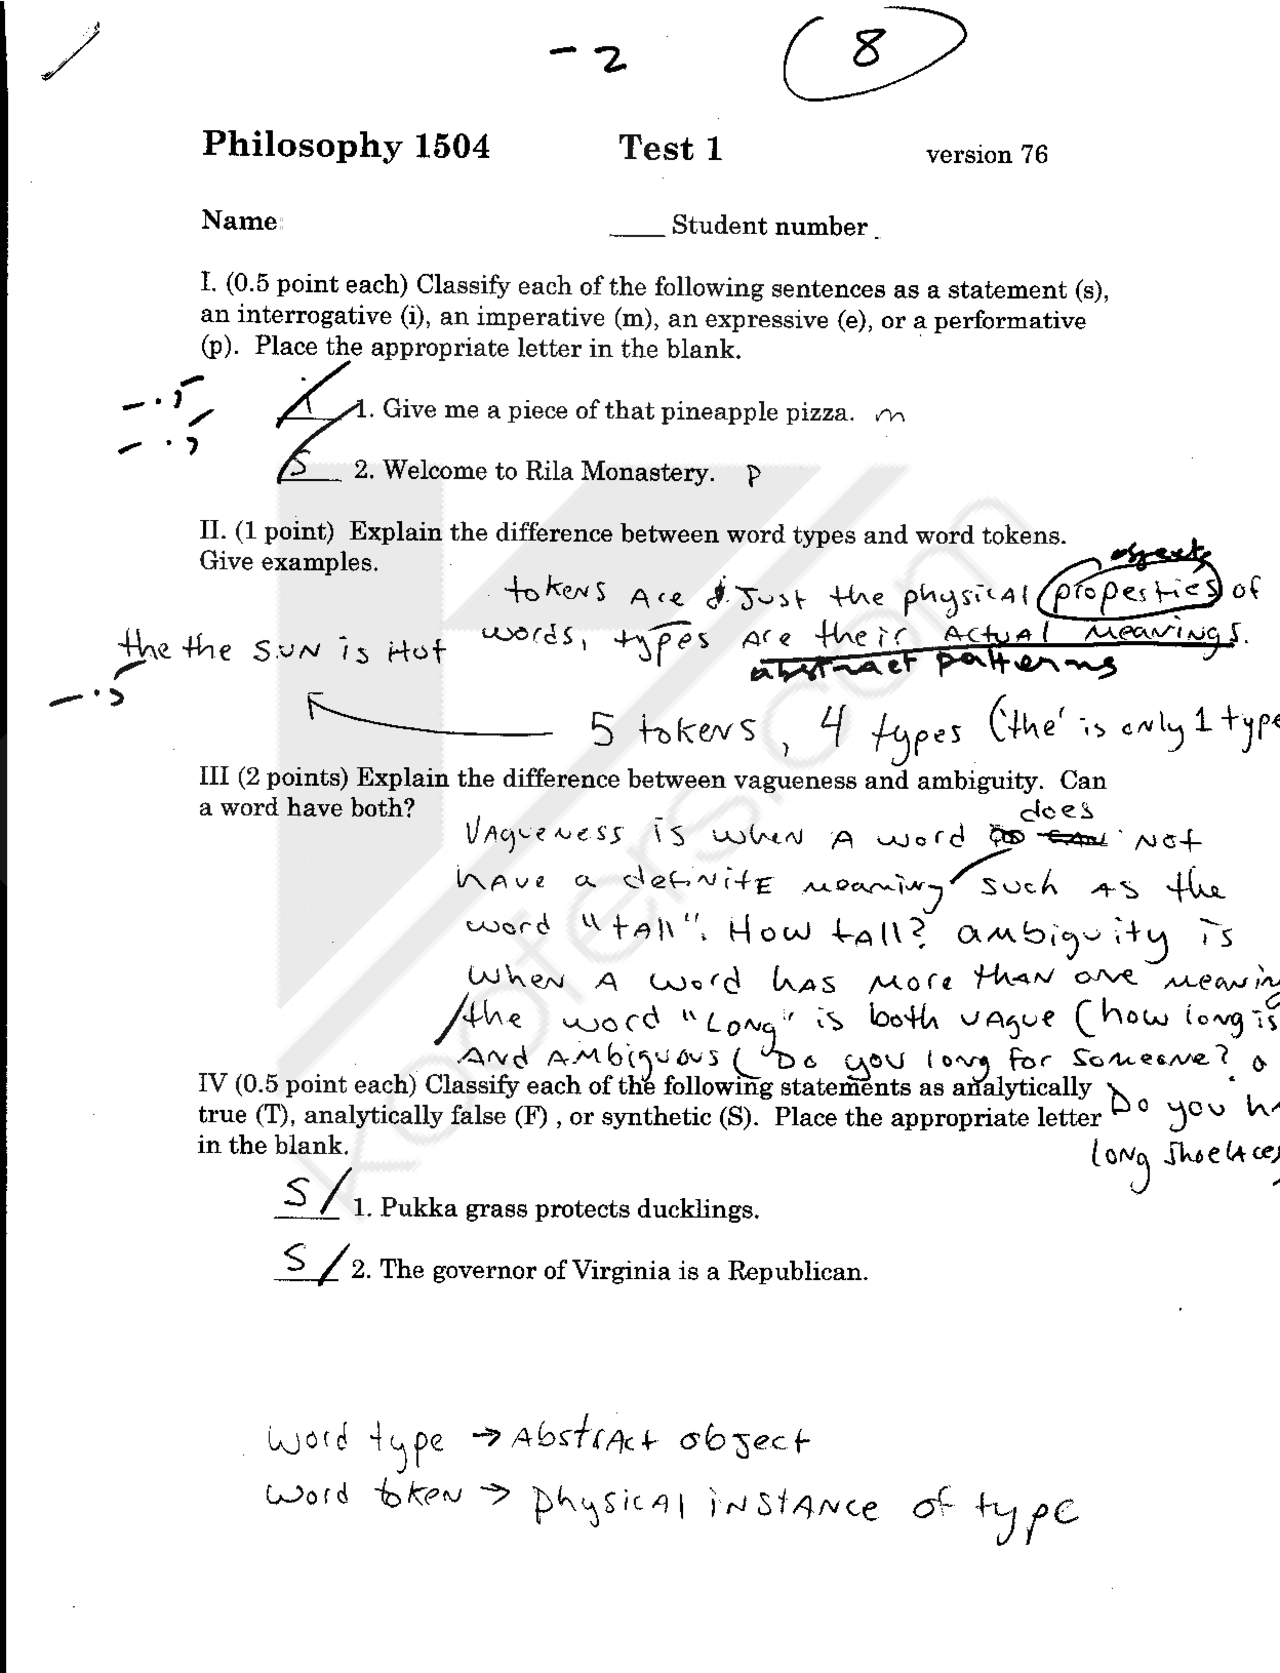 - 2 8
Philosophy 1504 Test 1 version 76
Name ____ Student number
I. (0.5 point each) Classify each of the following sentences as a statement (s),
an interrogative (i), an imperative (m), an expressive (e), or a performative
(p). Place the appropriate letter in the blank.
-.5 i 1. Give me a piece of that pineapple pizza. m
-.5 S 2. Welcome to Rila Monastery. p
II. (1 point) Explain the difference between word types and word tokens.
Give examples.
objects
tokens are just the physical properties of
words, types are their actual meanings.
abstract patterns
the the sun is Hot
-.5
5 tokens, 4 types ('the' is only 1 type
III (2 points) Explain the difference between vagueness and ambiguity. Can
a word have both?
does
Vagueness is when a word not
have a definite meaning such as the
word "tall". How tall? ambiguity is
when a word has more than one meanin
the word "Long" is both vague (how long is
and ambiguous ("Do you long for someone?
Do you
long shoelaces
IV (0.5 point each) Classify each of the following statements as analytically
true (T), analytically false (F) , or synthetic (S). Place the appropriate letter
in the blank.
S 1. Pukka grass protects ducklings.
S 2. The governor of Virginia is a Republican.
word type → Abstract object
word token → physical instance of type
koofers.com